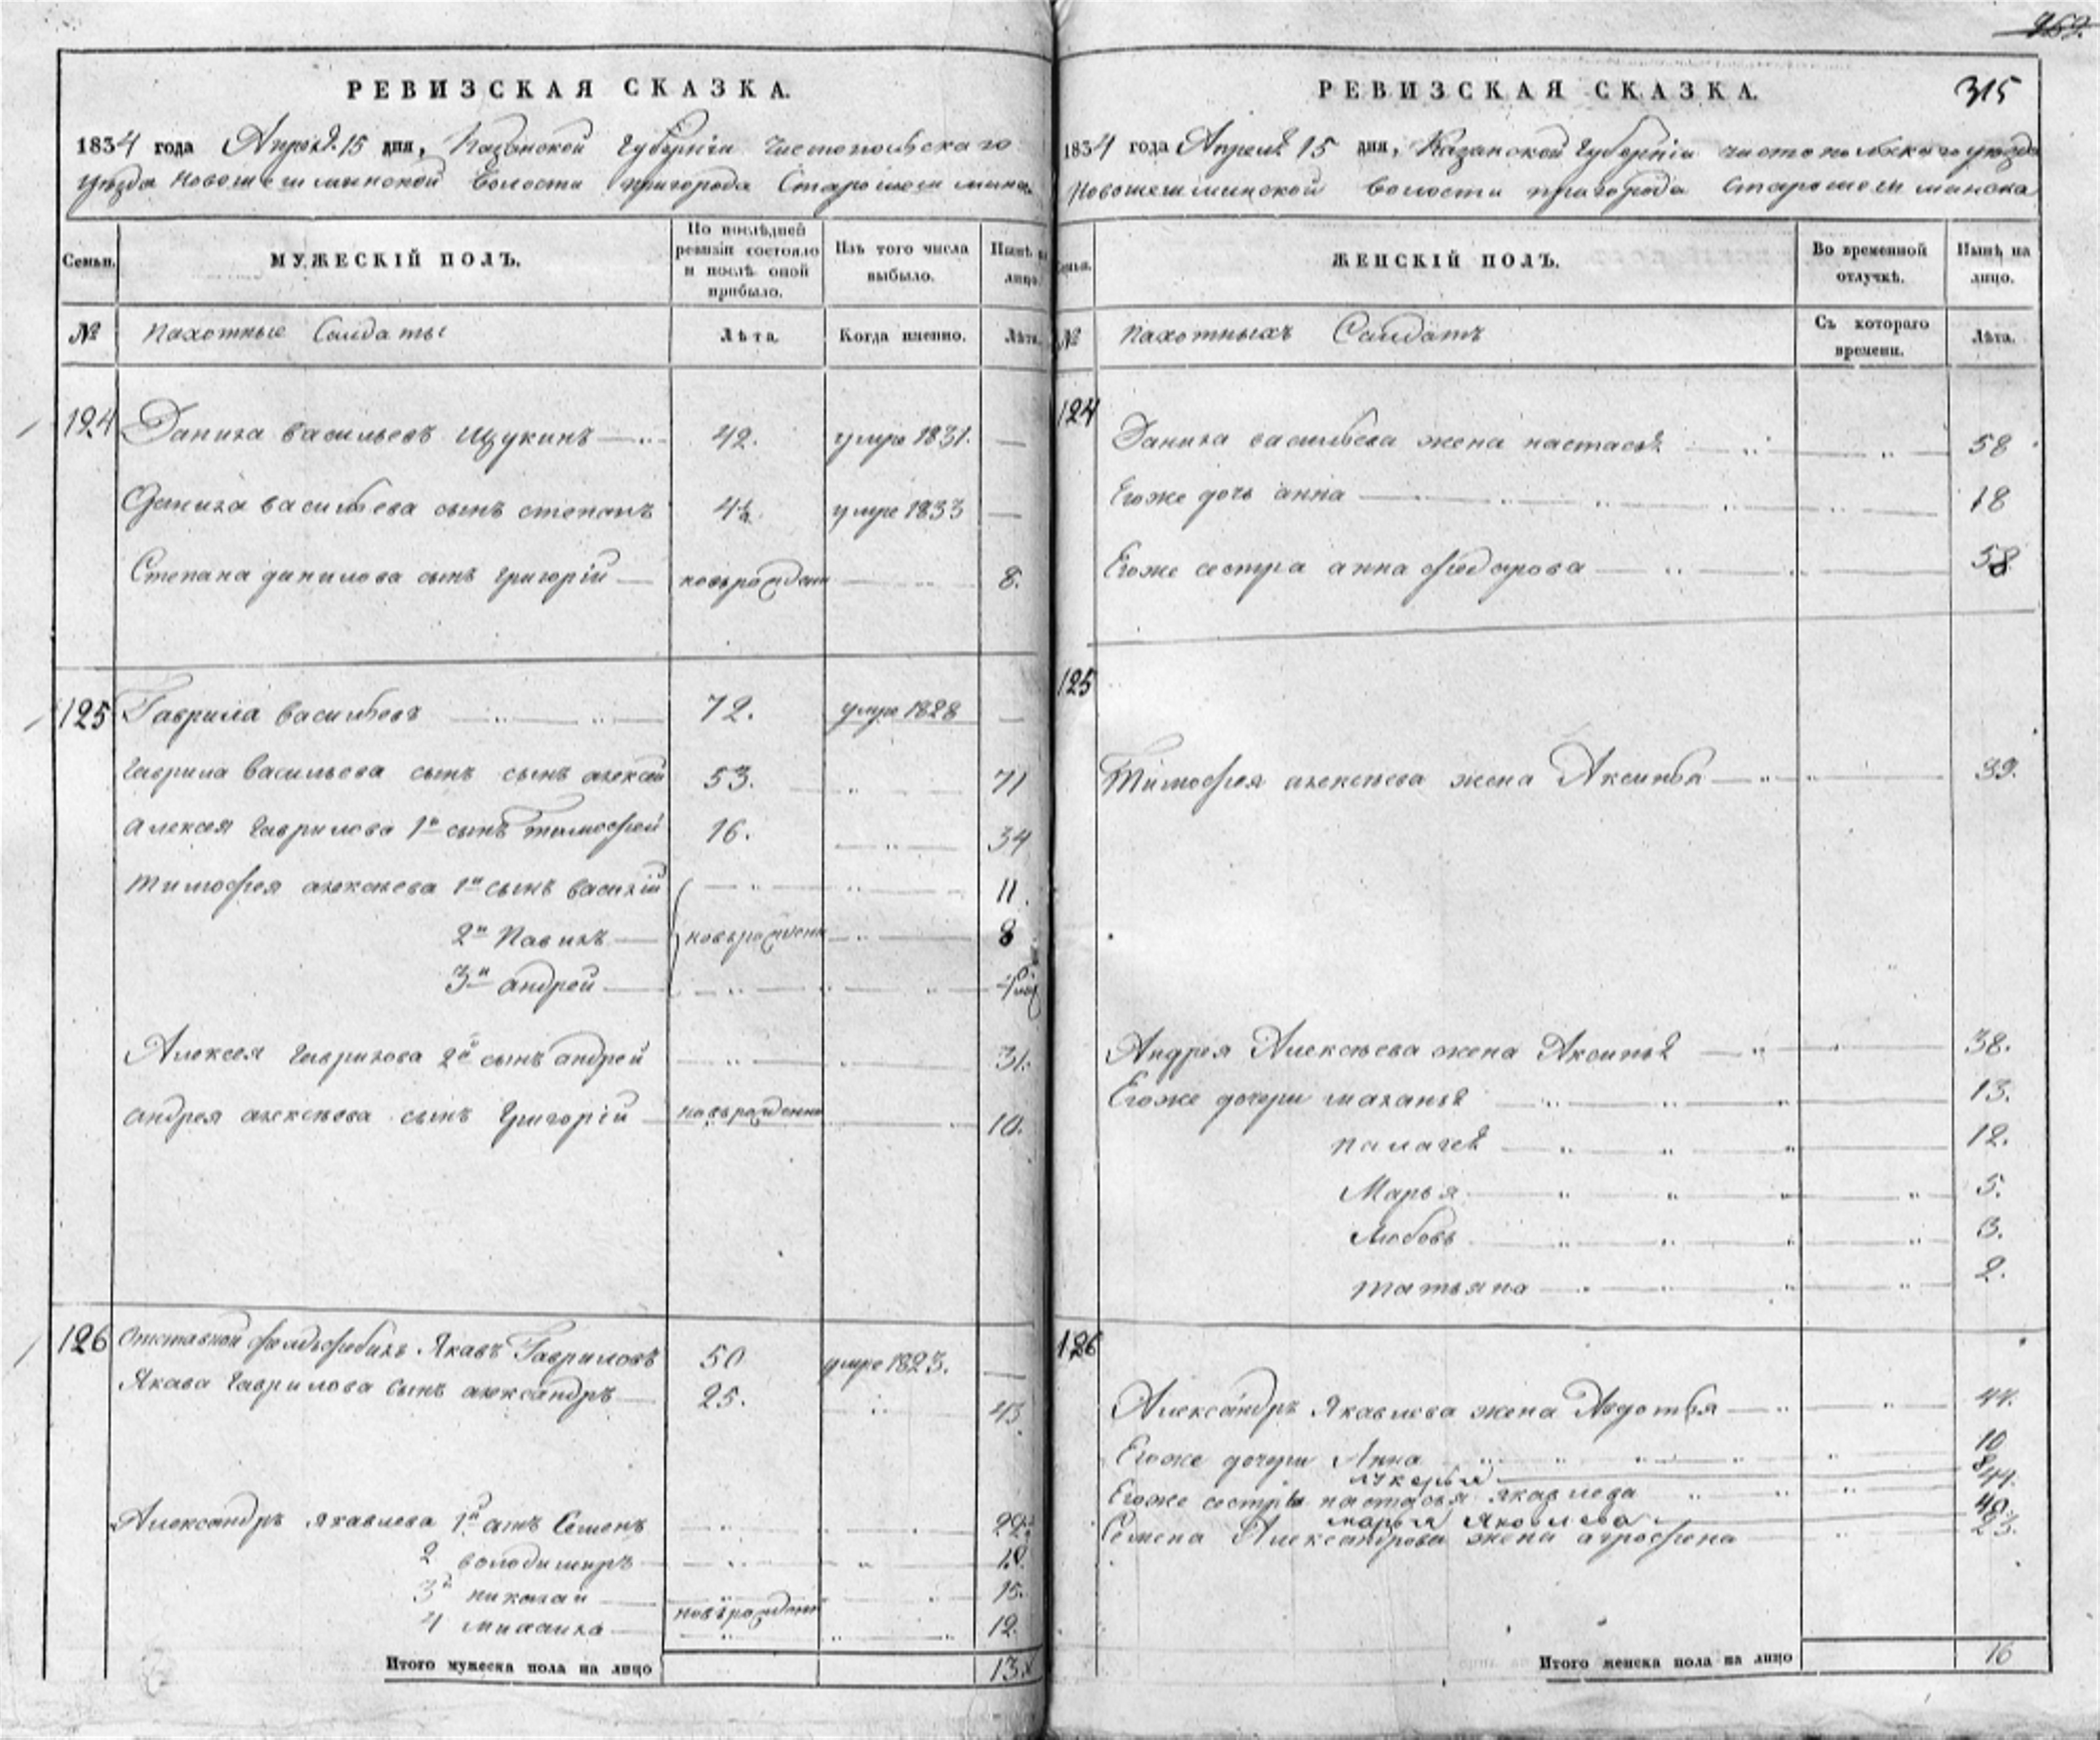 РЕВИЗСКАЯ СКАЗКА.
1834 года Апреля 15 дня, Казанской Губернии Чистопольскаго
уезда Новошешминской волости пригорода Старошешминска
Семьи. МУЖЕСКІЙ ПОЛЪ. По послѣдней ревизіи состояло и послѣ оной прибыло. Изъ того числа выбыло. Нынѣ на лицо.
№ Пахотные Салдаты Лѣта. Когда именно. Лѣта.
124 Данила васильевъ Щукинъ 42. умре 1831. —
Данила васильева сынъ степанъ умре 1833 —
Степана данилова сынъ григорій новърожденъ 8.
125 Гаврила васильевъ 72. умре 1828 —
Гаврила васильева сынъ сынъ алексей 53. 71
Алексея гаврилова 1й сынъ тимофей 16. 34
тимофея алексѣева 1й сынъ василій 11.
2й Павилъ новърождени 8
3й андрей
Алексея гаврилова 2й сынъ андрей 31.
андрея алексѣева сынъ григорій новърожденъ 10.
126 Отставной Якавъ Гавриловъ 50 умре 1823. —
Якава гаврилова сынъ александръ 25. 43
Александръ якавлева 1й Семенъ 22
2 володимиръ 18.
3й николай 15.
4 михаила новърождени 12.
Итого мужеска пола на лицо 13
969.
315
РЕВИЗСКАЯ СКАЗКА.
1834 года Апреля 15 дня, Казанской Губерніи чистопольскаго уезда
Новошешминской волости пригорода старошешминска
Семьи. ЖЕНСКІЙ ПОЛЪ. Во временной отлучкѣ. Нынѣ на лицо.
№ Пахотныхъ Салдатъ Съ котораго времени. Лѣта.
124 Данила васильева жена настасья 58
Егоже дочь анна 18
Егоже сестра анна федорова 58
125
Тимофея алексѣева жена Аксинья 39.
Андрея Алексѣева жена Аксинья 38.
Егоже дочери маланья 13.
палагея 12.
Марья 5.
Любовь 3.
татьяна 2.
126
Александръ Якавлева жена Авдотья 44.
Егоже дочери Анна 10
лукерья 8
Егоже сестры настасья якавлева 44.
марья Яковлева 40.
Семена Александрова жена агрофена 23.
Итого женска пола на лицо 16